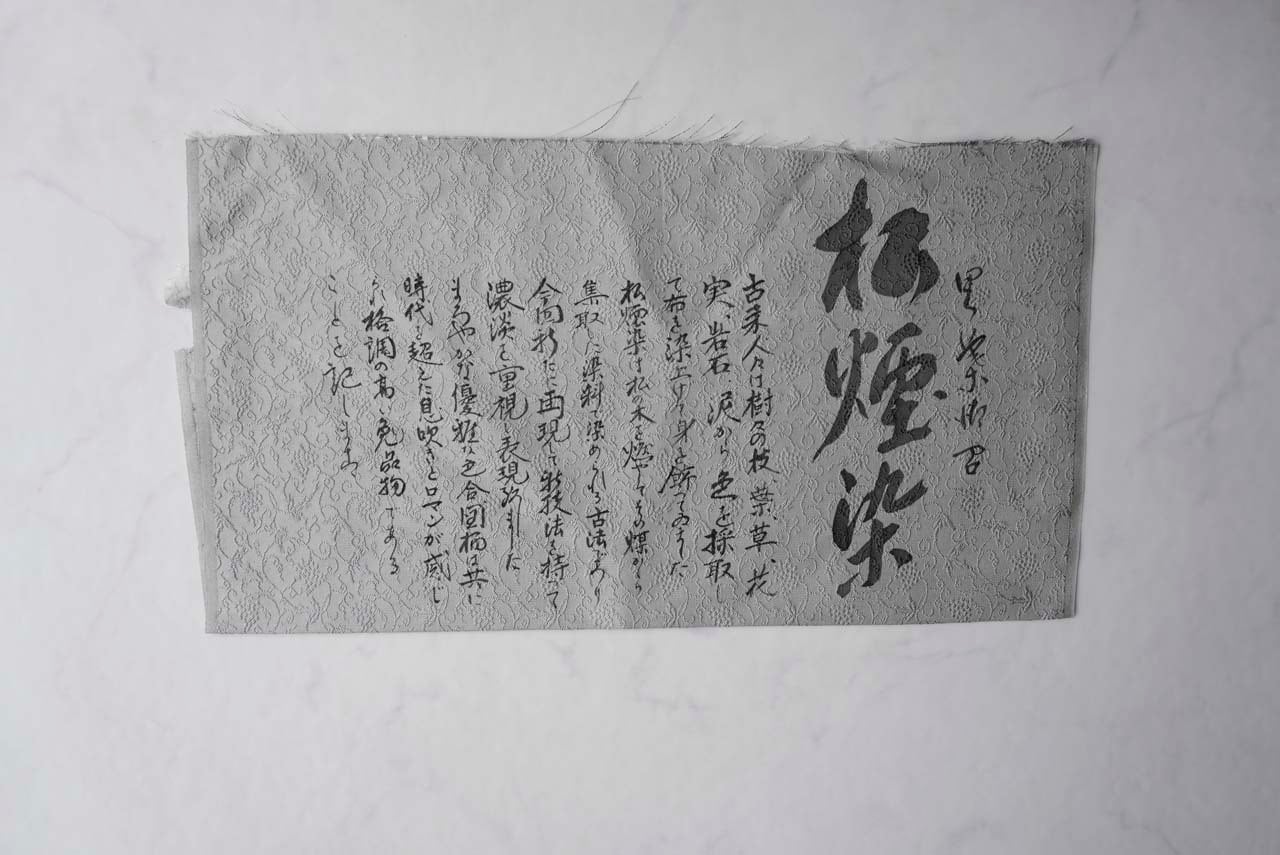 松煙染
古来人々は樹々の枝、葉、草、花
実、岩石、泥から色を採取し
て布を染上げて身を飾ってゐました
松煙染は松の木を燃やしてその煤から
集取した染料で染められる古法であり
今回新たに再現して新技法を持って
濃淡を重視し表現致しました
まろやかな優雅な色合図柄は共に
時代を超えた息吹きとロマンが感じ
られ格調の高い逸品物である
ことを記します